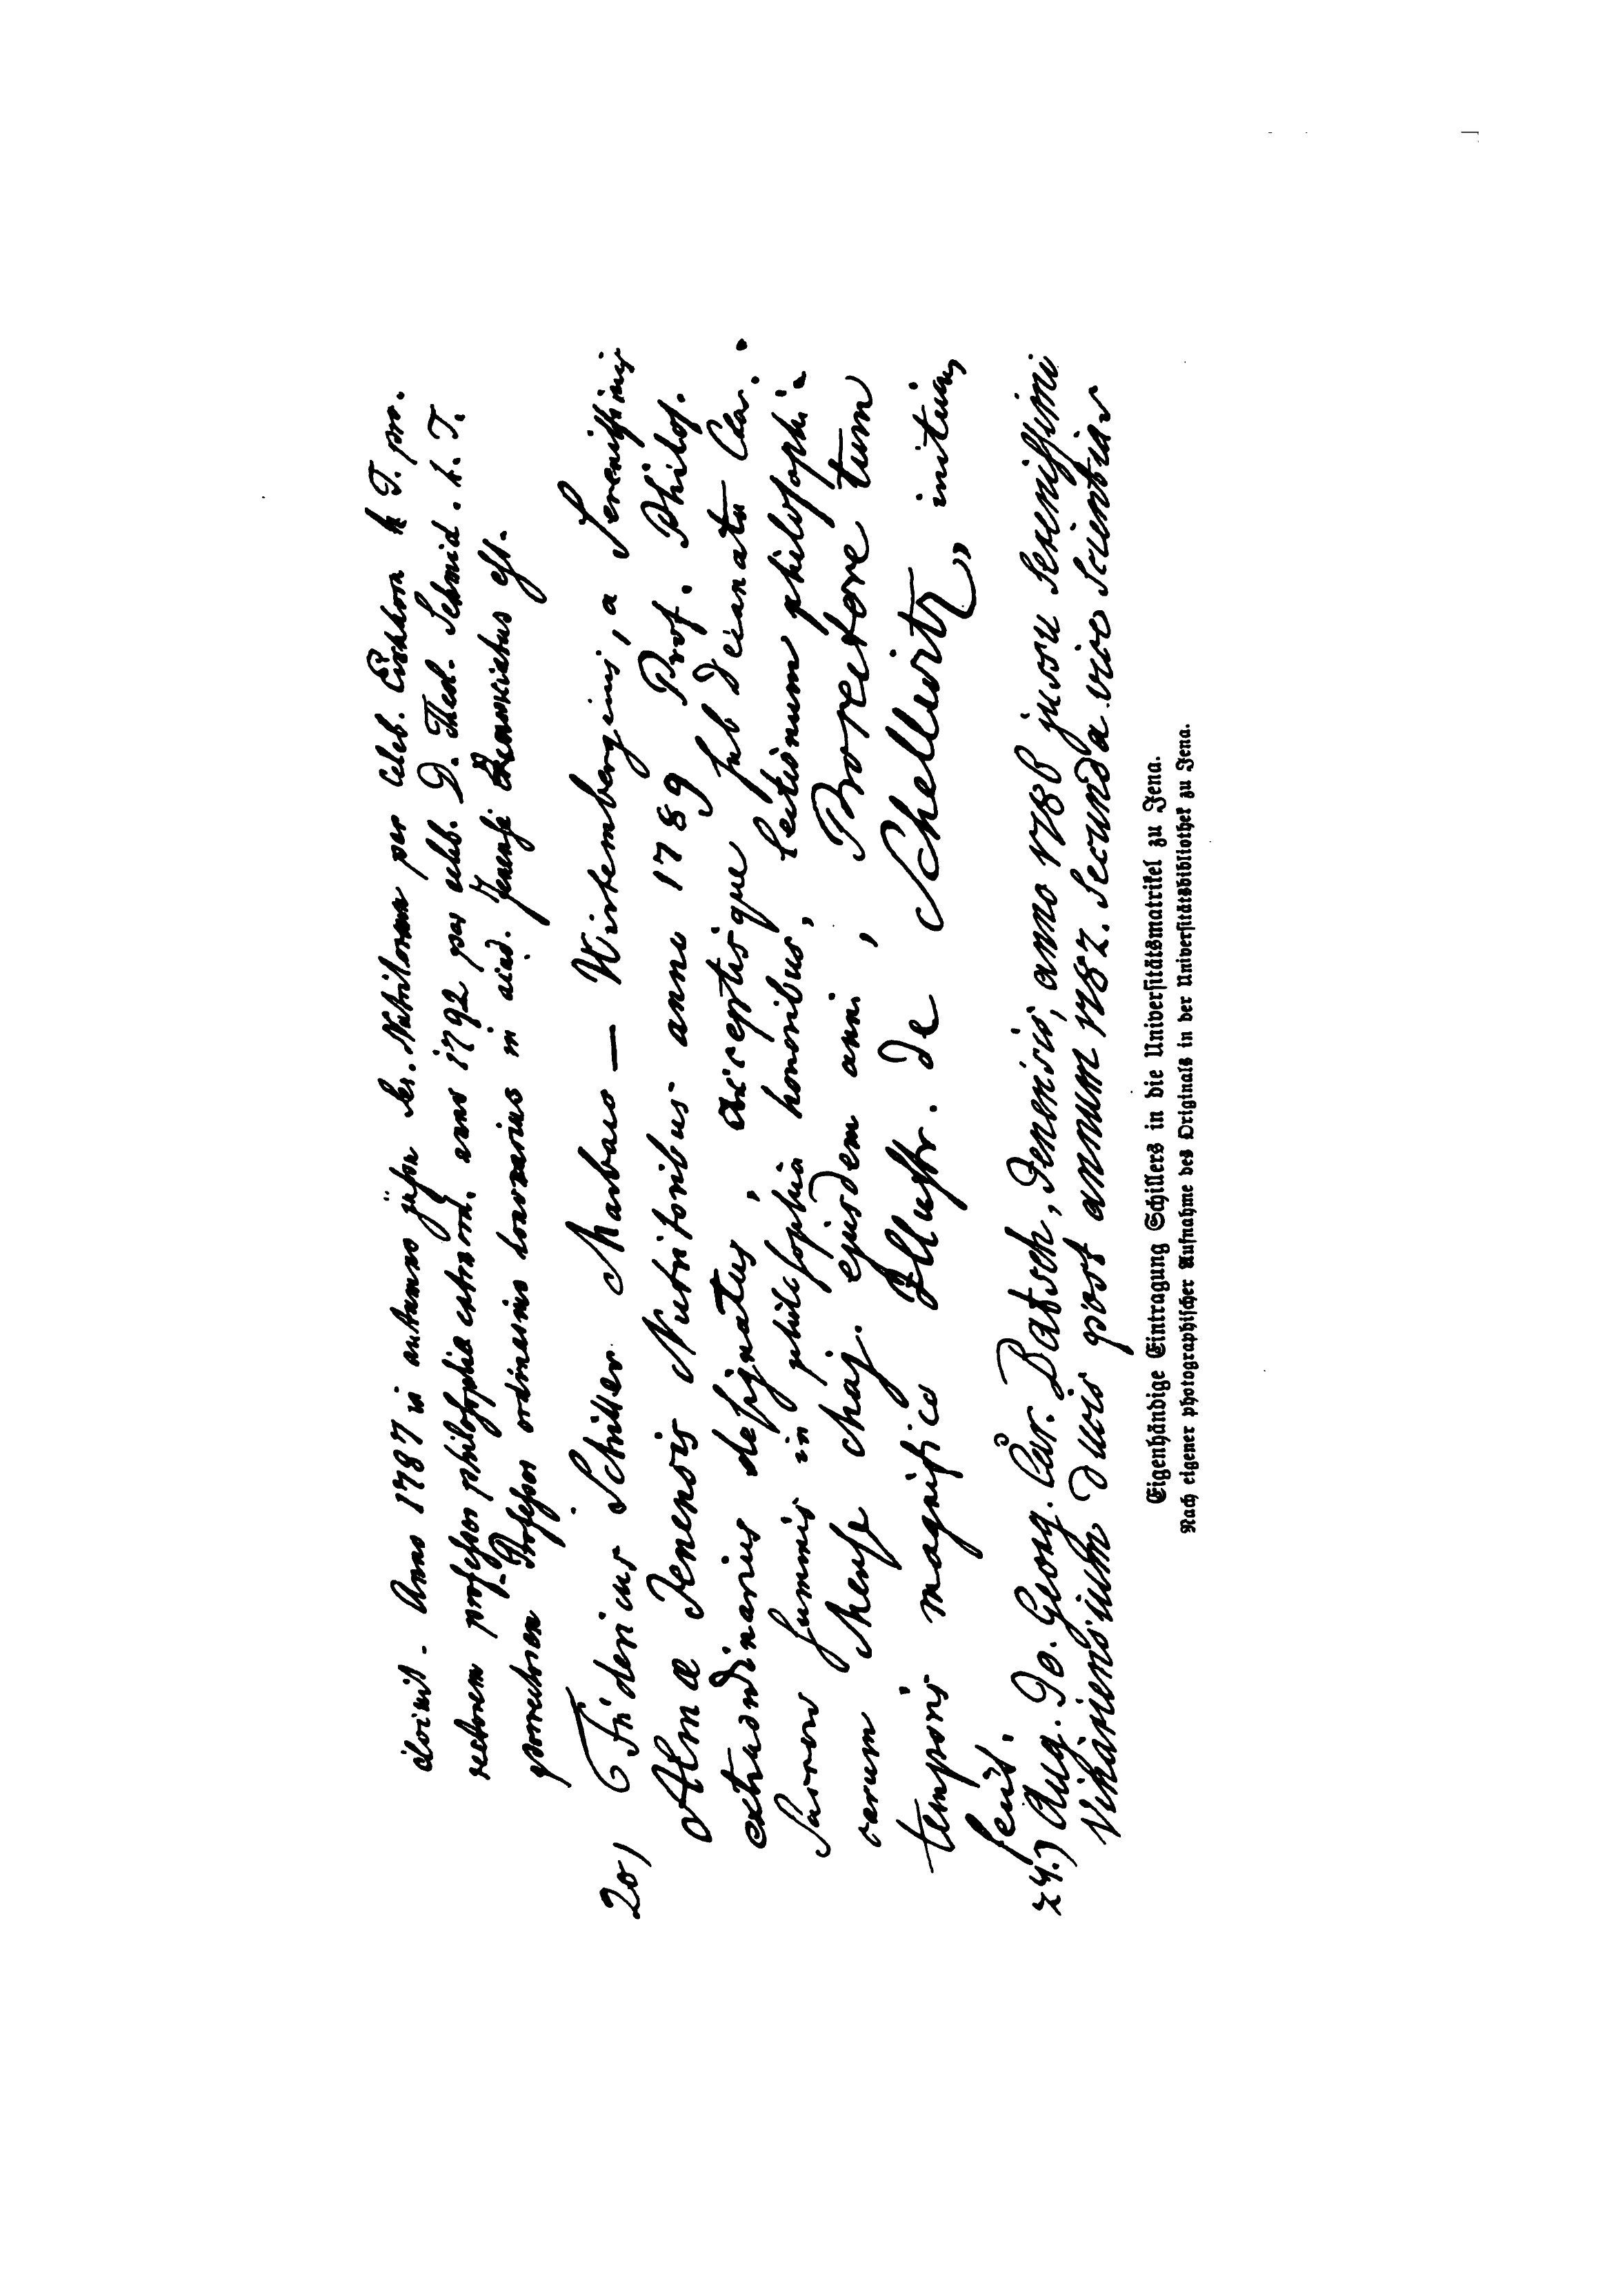 civivit. Anno 1787 in autumno jussu Ser. Nutritorum per Celeb. Eichhorn h. T. pro-
rectorem professor philosophiae extraord. anno 1792 per celeb. D. Theol. Schmid. h. T.
prorectorem Professor ordinarius honorarius in acad. Jenensi renunciatus est.
20) Fridericus Schiller Marbaco — Wirtembergicus, a Serenissimis
Almæ Jenensis Nutritoribus anno 1789 Prof. Philos.
extraordinarius designatus, acceptisque sub decanatu Cel.
summis in philosophia honoribus, lectionum philosophi-
carum Mense Maj. ejusdem anni, Prorectore tum
temporis magnifico Illustr. de Schellwitz, initium
fecit.
24.) Aug. Jo. Georg. Car. Batsch, Jenensis, anno 1786 jussu Serenissimi
Vikariensium Ducis post annum 1782. Secunda vice Scientiar
Eigenhändige Eintragung Schillers in die Universitätsmatrikel zu Jena.
Nach eigener photographischer Aufnahme des Originals in der Universitätsbibliothek zu Jena.